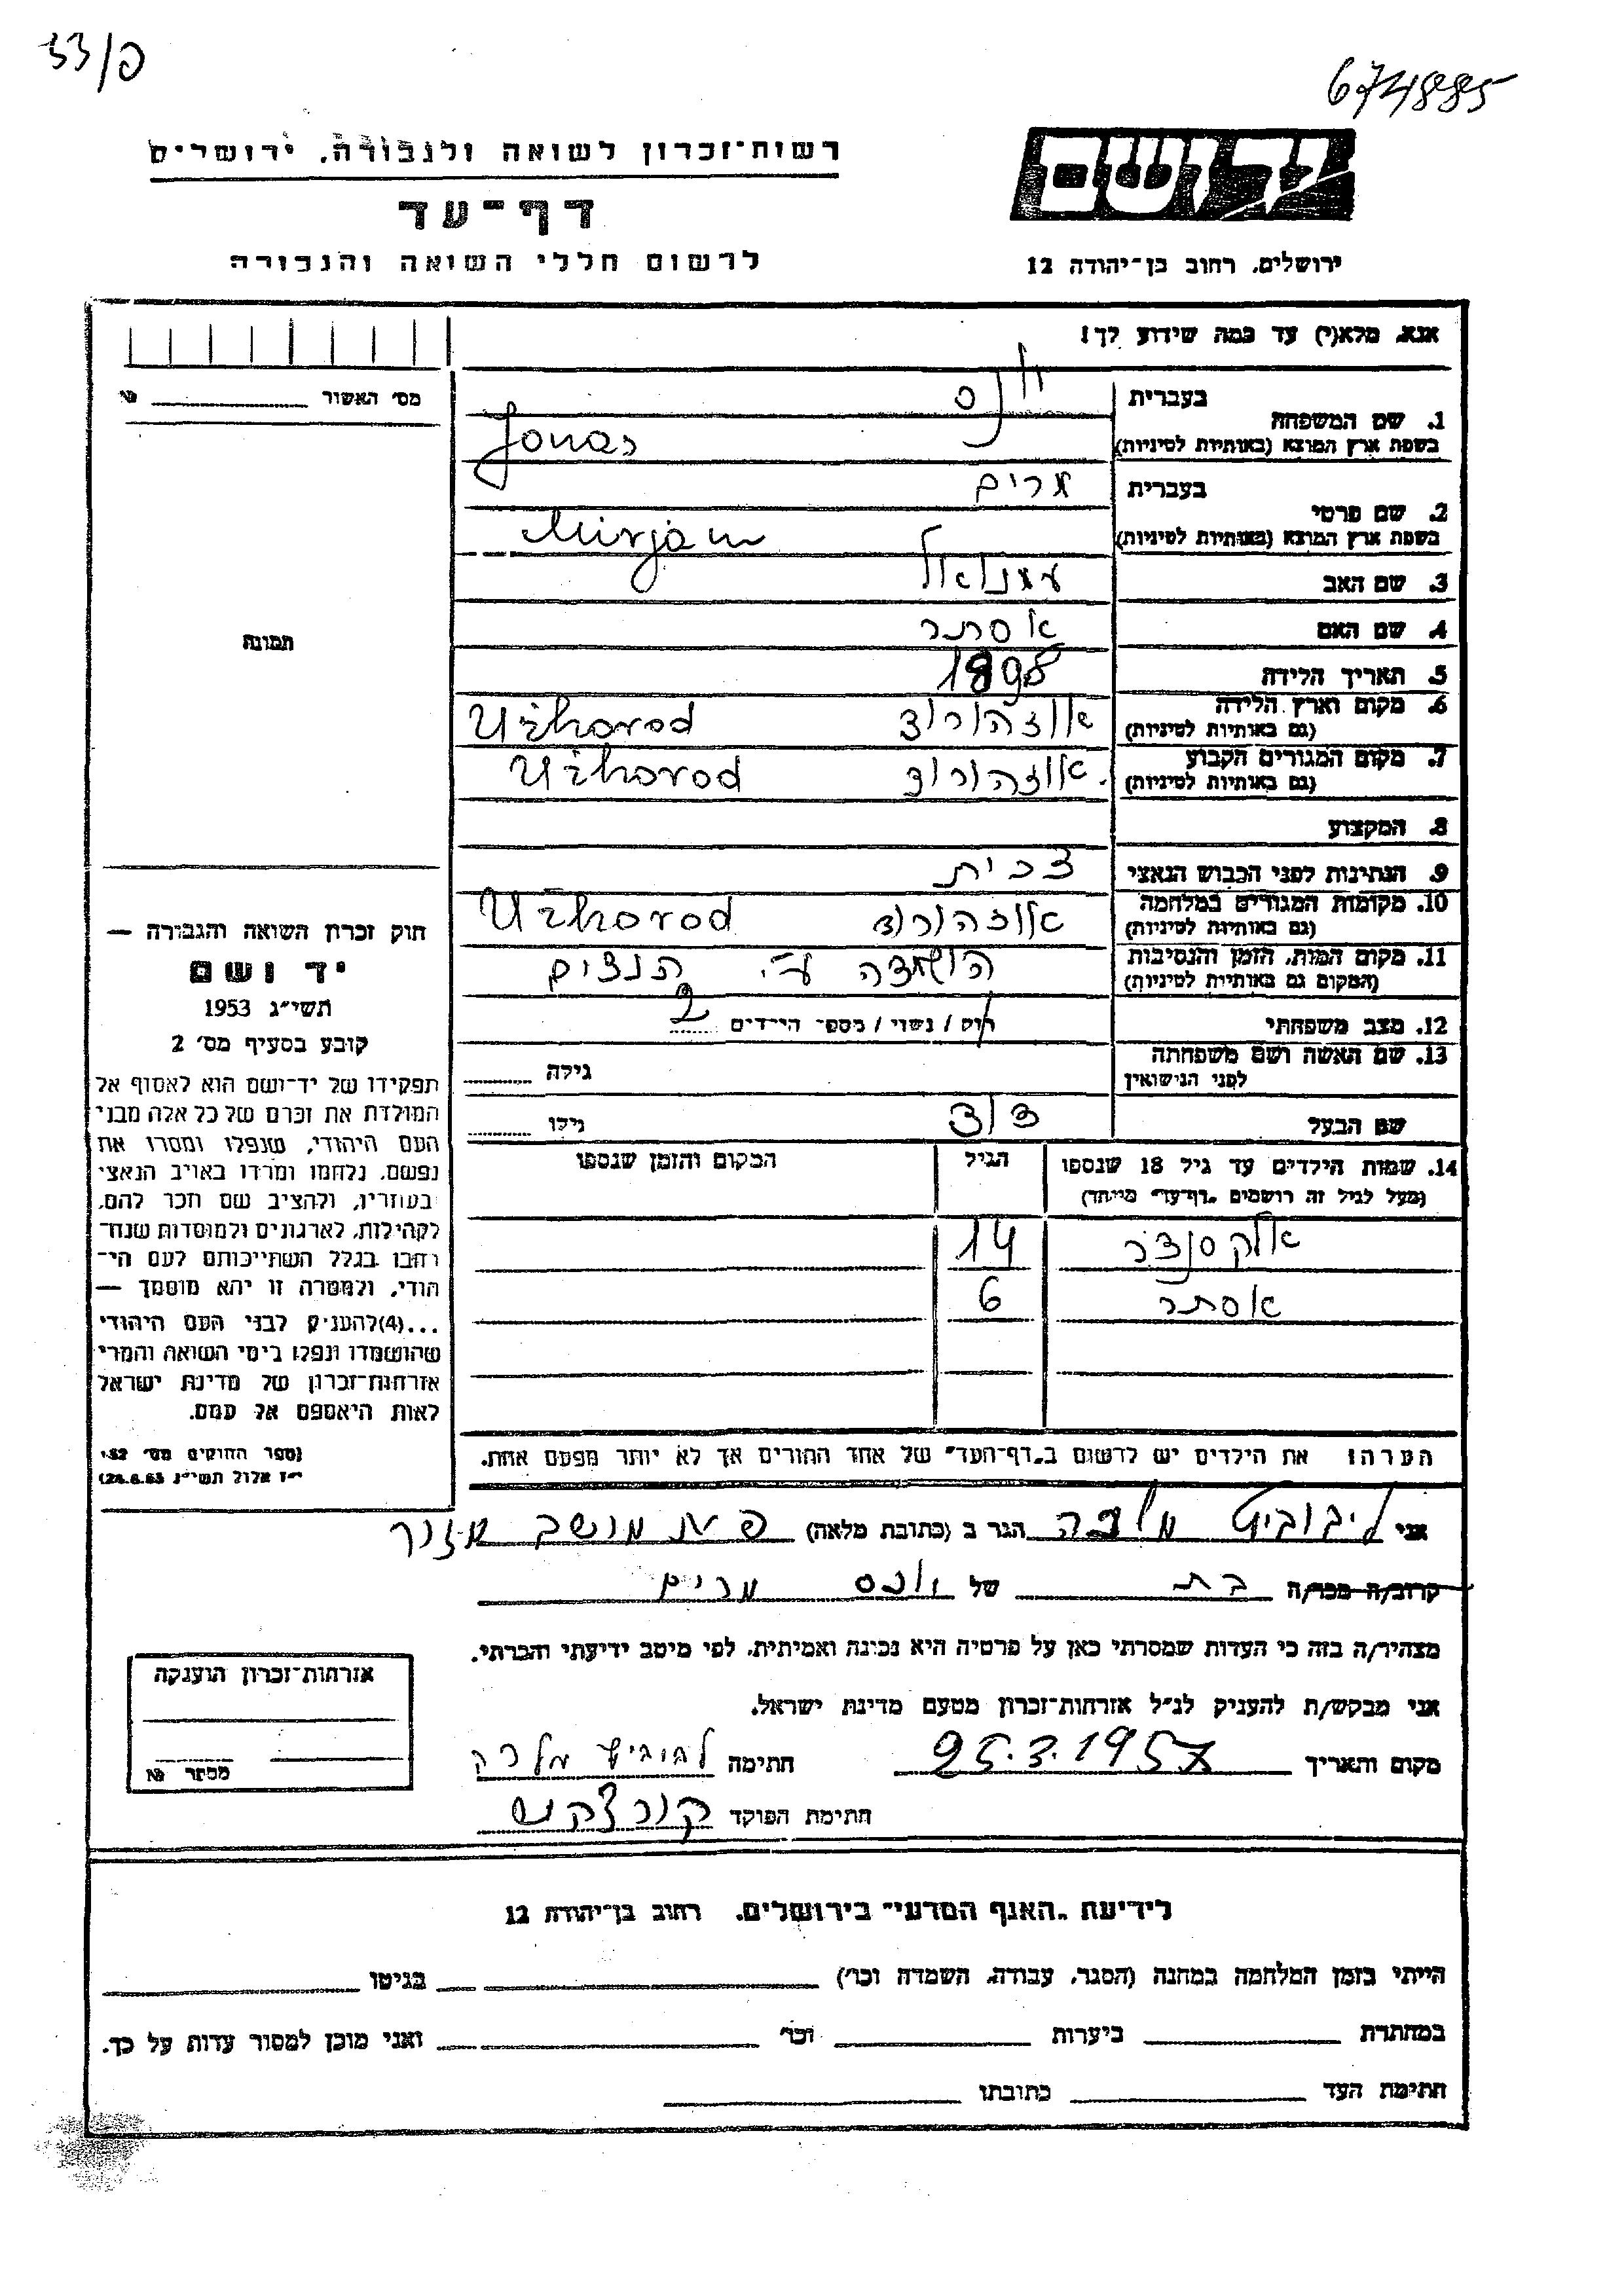 33/פ
674885
רשות־זכרון לשואה ולגבורה, ירושלים
דף־עד
לרשום חללי השואה והגבורה
יד ושם
ירושלים, רחוב בן־יהודה 12
אנא, מלא(י) עד כמה שידוע לך!
מס׳ האשור № ........
1. שם המשפחה
בעברית יונס
בשפת ארץ המוצא (באותיות לטיניות) Jonas
2. שם פרטי
בעברית מרים
בשפת ארץ המוצא (באותיות לטיניות) Mirjam
3. שם האב עמנואל
4. שם האם אסתר
5. תאריך הלידה 1898
6. מקום וארץ הלידה
(גם באותיות לטיניות) אוזהורוד Užhorod
7. מקום המגורים הקבוע
(גם באותיות לטיניות) אוזהורוד Užhorod
8. המקצוע
9. הנתינות לפני הכבוש הנאצי צ׳כית
10. מקומות המגורים במלחמה
(גם באותיות לטיניות) אוזהורוד Užhorod
11. מקום המות, הזמן והנסיבות
(המקום גם באותיות לטיניות) הושמדה ע״י הנצים
12. מצב משפחתי רוק / נשוי / מספר הילדים 2
13. שם האשה ושם משפחתה
לפני הנישואין גילה ........
שם הבעל דוד גילו ........
14. שמות הילדים עד גיל 18 שנספו
(מעל לגיל זה רושמים „דף־עד״ מיוחד)
הגיל
המקום והזמן שנספו
אלקסנדר 14
אסתר 6
הערה: את הילדים יש לרשום ב„דף־העד״ של אחד ההורים אך לא יותר מפעם אחת.
תמונה
חוק זכרון השואה והגבורה —
יד ושם
תשי״ג 1953
קובע בסעיף מס׳ 2
תפקידו של יד־ושם הוא לאסוף אל
המולדת את זכרם של כל אלה מבני
העם היהודי, שנפלו ומסרו את
נפשם, נלחמו ומרדו באויב הנאצי
בעוזריו, ולהציב שם וזכר להם,
לקהילות, לארגונים ולמוסדות שנח־
רחבו בגלל השתייכותם לעם הי־
הודי, ולמטרה זו יהא מוסמך —
...(4)להעניק לבני העם היהודי
שהושמדו ונפלו בימי השואה והמרי
אזרחות־זכרון של מדינת ישראל
לאות היאספם אל עמם.
(ספר החוקים מס׳ 132,
י״ז אלול תשי״ג 28.8.53)
אני ליבוביץ מלכה הגר ב (כתובת מלאה) פ״ת מושב מזור
קרוב/ה מכר/ה בת של יונס מרים
מצהיר/ה בזה כי העדות שמסרתי כאן על פרטיה היא נכונה ואמיתית, לפי מיטב ידיעתי והכרתי.
אני מבקש/ת להעניק לנ״ל אזרחות־זכרון מטעם מדינת ישראל.
מקום ותאריך 25.3.1957 חתימה ליבוביץ מלכה
חתימת הפוקד
אזרחות־זכרון הוענקה
מספר №
לידיעת „האגף המדעי״ בירושלים, רחוב בן־יהודה 12
הייתי בזמן המלחמה במחנה (הסגר, עבודה, השמדה וכו׳) בגיטו
במחתרת ביערות וכו׳ ואני מוכן למסור עדות על כך.
חתימת העד כתובתו